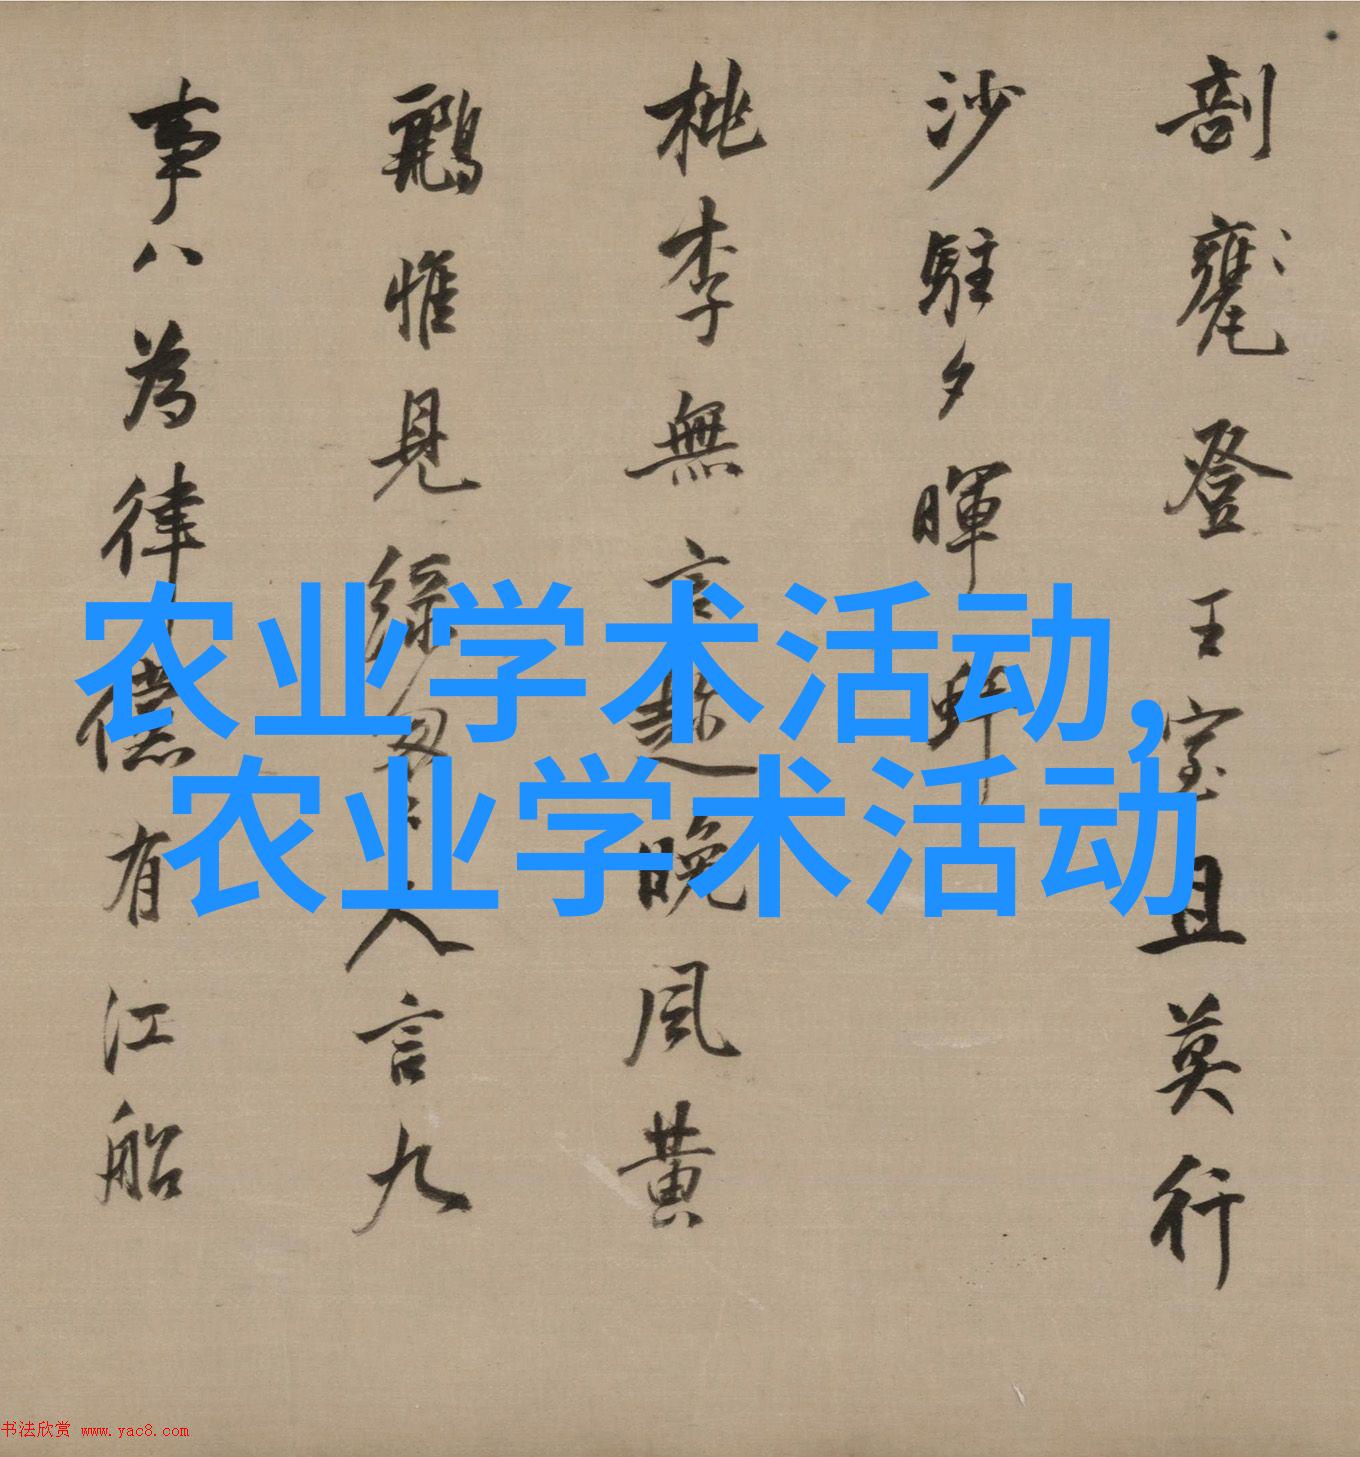 剖甕登王室且莫行
沙駐夕暉蚌
桃李無言趂晚風黃
鸝惟見綠匆〻人言九
事八為律儻有江船
农业学术活动,
农业学术活动
书法欣赏 www.yac8.com